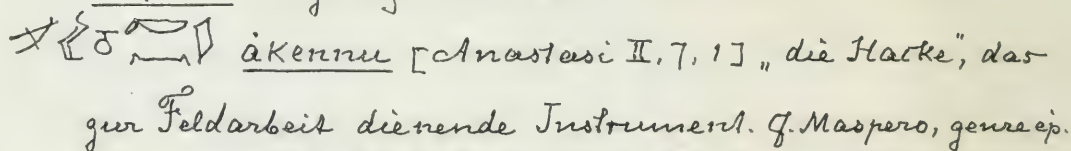 åkennu [Anastasi II, 7, 1] „die Hacke", das
zur Feldarbeit dienende Instrument. Cf. Maspero, genre ép.